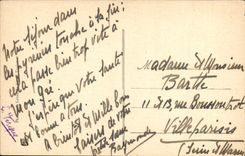 Notre séjour dans
les Pyrénées touche à sa fin:
cela passe bien trop vite à
mon gré.
J'espère que votre santé
est bonne à tous
A bientôt de
baisers de votre
petite
Raymonde
Madame et Monsieur
Barthe
11 Rue
Villeparisis
(Seine et Marne)